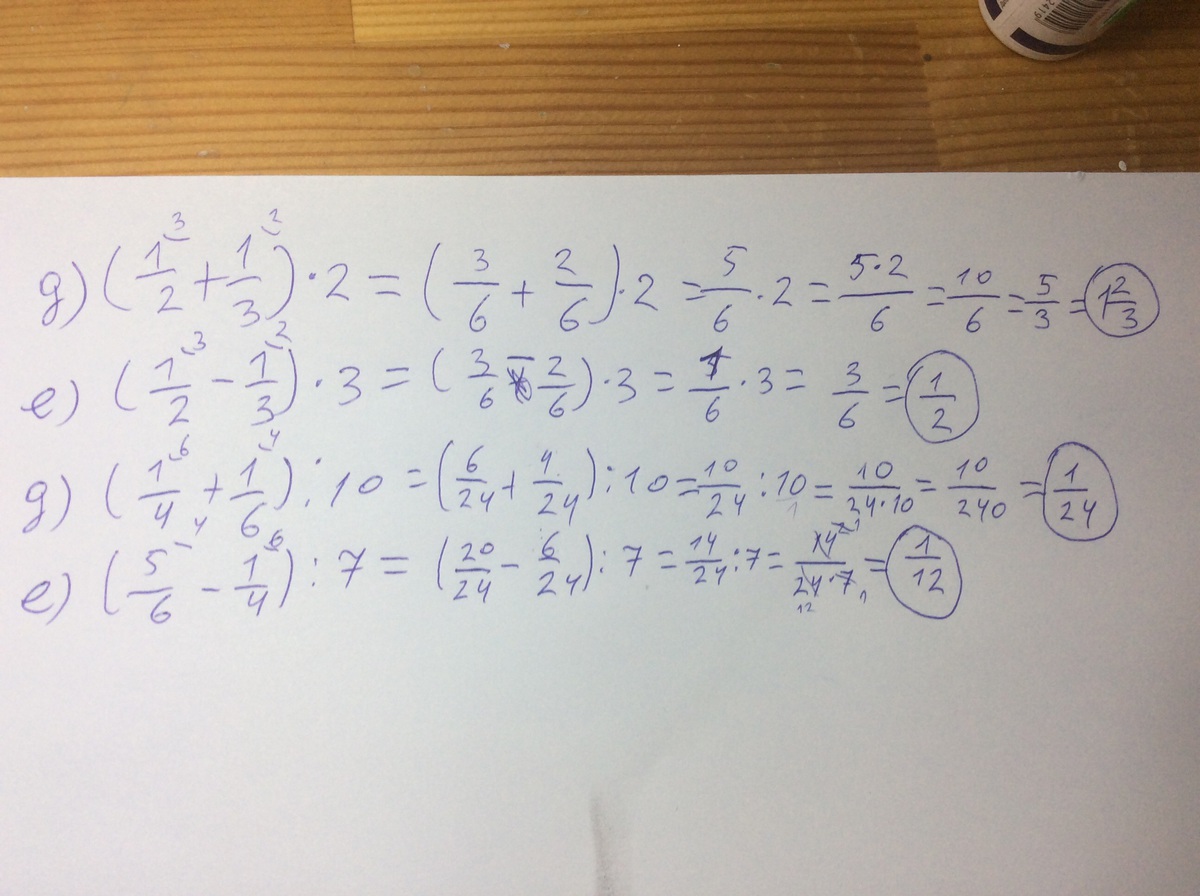 g) (1/2^3 + 1/3^2) · 2 = (3/6 + 2/6) · 2 = 5/6 · 2 = 5·2/6 = 10/6 = 5/3 = 1 2/3
e) (1/2^3 - 1/3^2) · 3 = (3/6 - 2/6) · 3 = 1/6 · 3 = 3/6 = 1/2
g) (1/4^6 + 1/6^4) : 10 = (6/24 + 4/24) : 10 = 10/24 : 10 = 10/24·10 = 10/240 = 1/24
e) (5/6^4 - 1/4^6) : 7 = (20/24 - 6/24) : 7 = 14/24 : 7 = 14/24·7 = 1/12